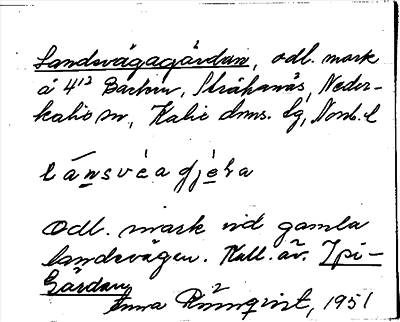 Landsvägagärdan, odl. mark
å 4¹² Backen, Stråkanäs, Neder-
kalix sn, Kalix dms. lg, Norrb. l
lánsvéa gjéɷa
Odl. mark vid gamla
landsvägen. Kall. äv. Ipi-
Gärdan
Anna Rönnqvist, 1951